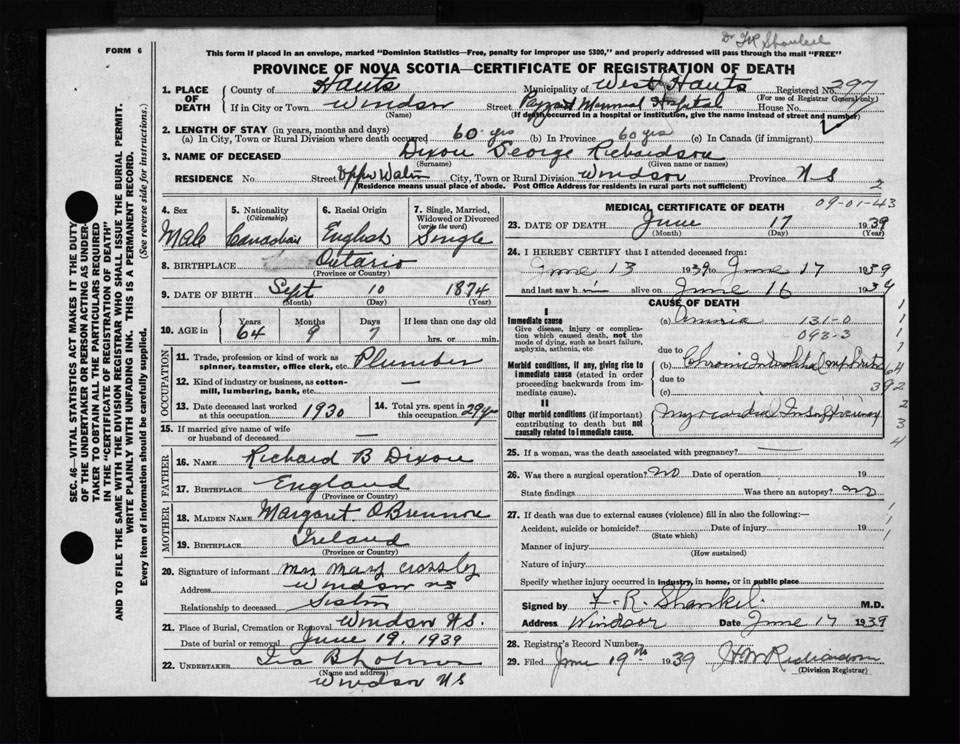 FORM 6
Dr FR Shankel
This form if placed in an envelope, marked "Dominion Statistics—Free, penalty for improper use $300," and properly addressed will pass through the mail "FREE"
PROVINCE OF NOVA SCOTIA—CERTIFICATE OF REGISTRATION OF DEATH
1. PLACE OF DEATH
County of Hants Municipality of West Hants Registered No. 297
(For use of Registrar General only)
If in City or Town Windsor Street Payzant Memorial Hospital House No.
(Name) (If death occurred in a hospital or institution, give the name instead of street and number)
2. LENGTH OF STAY (in years, months and days)
(a) In City, Town or Rural Division where death occurred 60 yrs (b) In Province 60 yrs (c) In Canada (if immigrant)
3. NAME OF DECEASED Dixon George Richardson
(Surname) (Given name or names)
RESIDENCE No. Street Upper Water City, Town or Rural Division Windsor Province N S
(Residence means usual place of abode. Post Office Address for residents in rural parts not sufficient)
2
09-01-43
4. Sex Male
5. Nationality (Citizenship) Canadian
6. Racial Origin English
7. Single, Married, Widowed or Divorced (write the word) Single
8. BIRTHPLACE Ontario
(Province or Country)
9. DATE OF BIRTH Sept 10 1874
(Month) (Day) (Year)
10. AGE in Years 64 Months 9 Days 7 If less than one day old hrs. or min.
OCCUPATION
11. Trade, profession or kind of work as spinner, teamster, office clerk, etc. Plumber
12. Kind of industry or business, as cotton-mill, lumbering, bank, etc. —
13. Date deceased last worked at this occupation 1930
14. Total yrs. spent in this occupation 29 yrs
15. If married give name of wife or husband of deceased —
FATHER
16. NAME Richard B Dixon
17. BIRTHPLACE England
(Province or Country)
MOTHER
18. MAIDEN NAME Margaret
19. BIRTHPLACE Ireland
(Province or Country)
20. Signature of informant Mrs Mary Crossley
Address Windsor NS
Relationship to deceased Sister
21. Place of Burial, Cremation or Removal Windsor N.S.
Date of burial or removal June 19. 1939
22. UNDERTAKER Ira B
(Name and address)
Windsor N S
MEDICAL CERTIFICATE OF DEATH
23. DATE OF DEATH June 17 1939
(Month) (Day) (Year)
24. I HEREBY CERTIFY that I attended deceased from:
June 13 1939 to June 17 1939
and last saw him alive on June 16 1939
CAUSE OF DEATH
I
Immediate cause
Give disease, injury or complication which caused death, not the mode of dying, such as heart failure, asphyxia, asthenia, etc
(a) 131-0
093-3
due to
(b) Chronic
Morbid conditions, if any, giving rise to immediate cause (stated in order proceeding backwards from immediate cause).
due to
(c)
392
II
Other morbid conditions (if important) contributing to death but not causally related to immediate cause.
Myocardial Insufficiency
25. If a woman, was the death associated with pregnancy? —
26. Was there a surgical operation? No Date of operation 19
State findings Was there an autopsy? No
27. If death was due to external causes (violence) fill in also the following:—
Accident, suicide or homicide? Date of injury 19
(State which)
Manner of injury
(How sustained)
Nature of injury
Specify whether injury occurred in industry, in home, or in public place
Signed by F. R. Shankel. M.D.
Address Windsor Date June 17 1939
28. Registrar's Record Number
29. Filed June 19th 1939 H W Richardson
(Division Registrar)
SEC. 46—VITAL STATISTICS ACT MAKES IT THE DUTY
OF THE UNDERTAKER OR PERSON ACTING AS UNDER-
TAKER TO OBTAIN ALL THE PARTICULARS REQUIRED
IN THE "CERTIFICATE OF REGISTRATION OF DEATH"
AND TO FILE THE SAME WITH THE DIVISION REGISTRAR WHO SHALL ISSUE THE BURIAL PERMIT.
WRITE PLAINLY WITH UNFADING INK. THIS IS A PERMANENT RECORD.
Every item of information should be carefully supplied.
(See reverse side for instructions.)